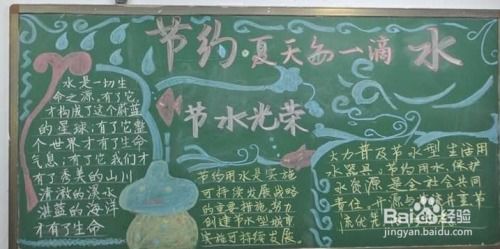 节约·夏天每一滴水
水是一切生
命之源,有了它,
才构成了这个蔚蓝
的星球;有了它整
个世界才有了生命
气息;有了它我们才
有了秀美的山川
清澈的溪水
湛蓝的海洋
才有了生命
节水光荣
节约用水是实施
可持续发展战略
的重要措施努力
创建节水型城市
实施可持续发展
大力普及节水型生活用
水器具,节约用水,保护
水资源,是全社会共同
责任,开源
流优先
Baidu经验
jingyan.baidu.com